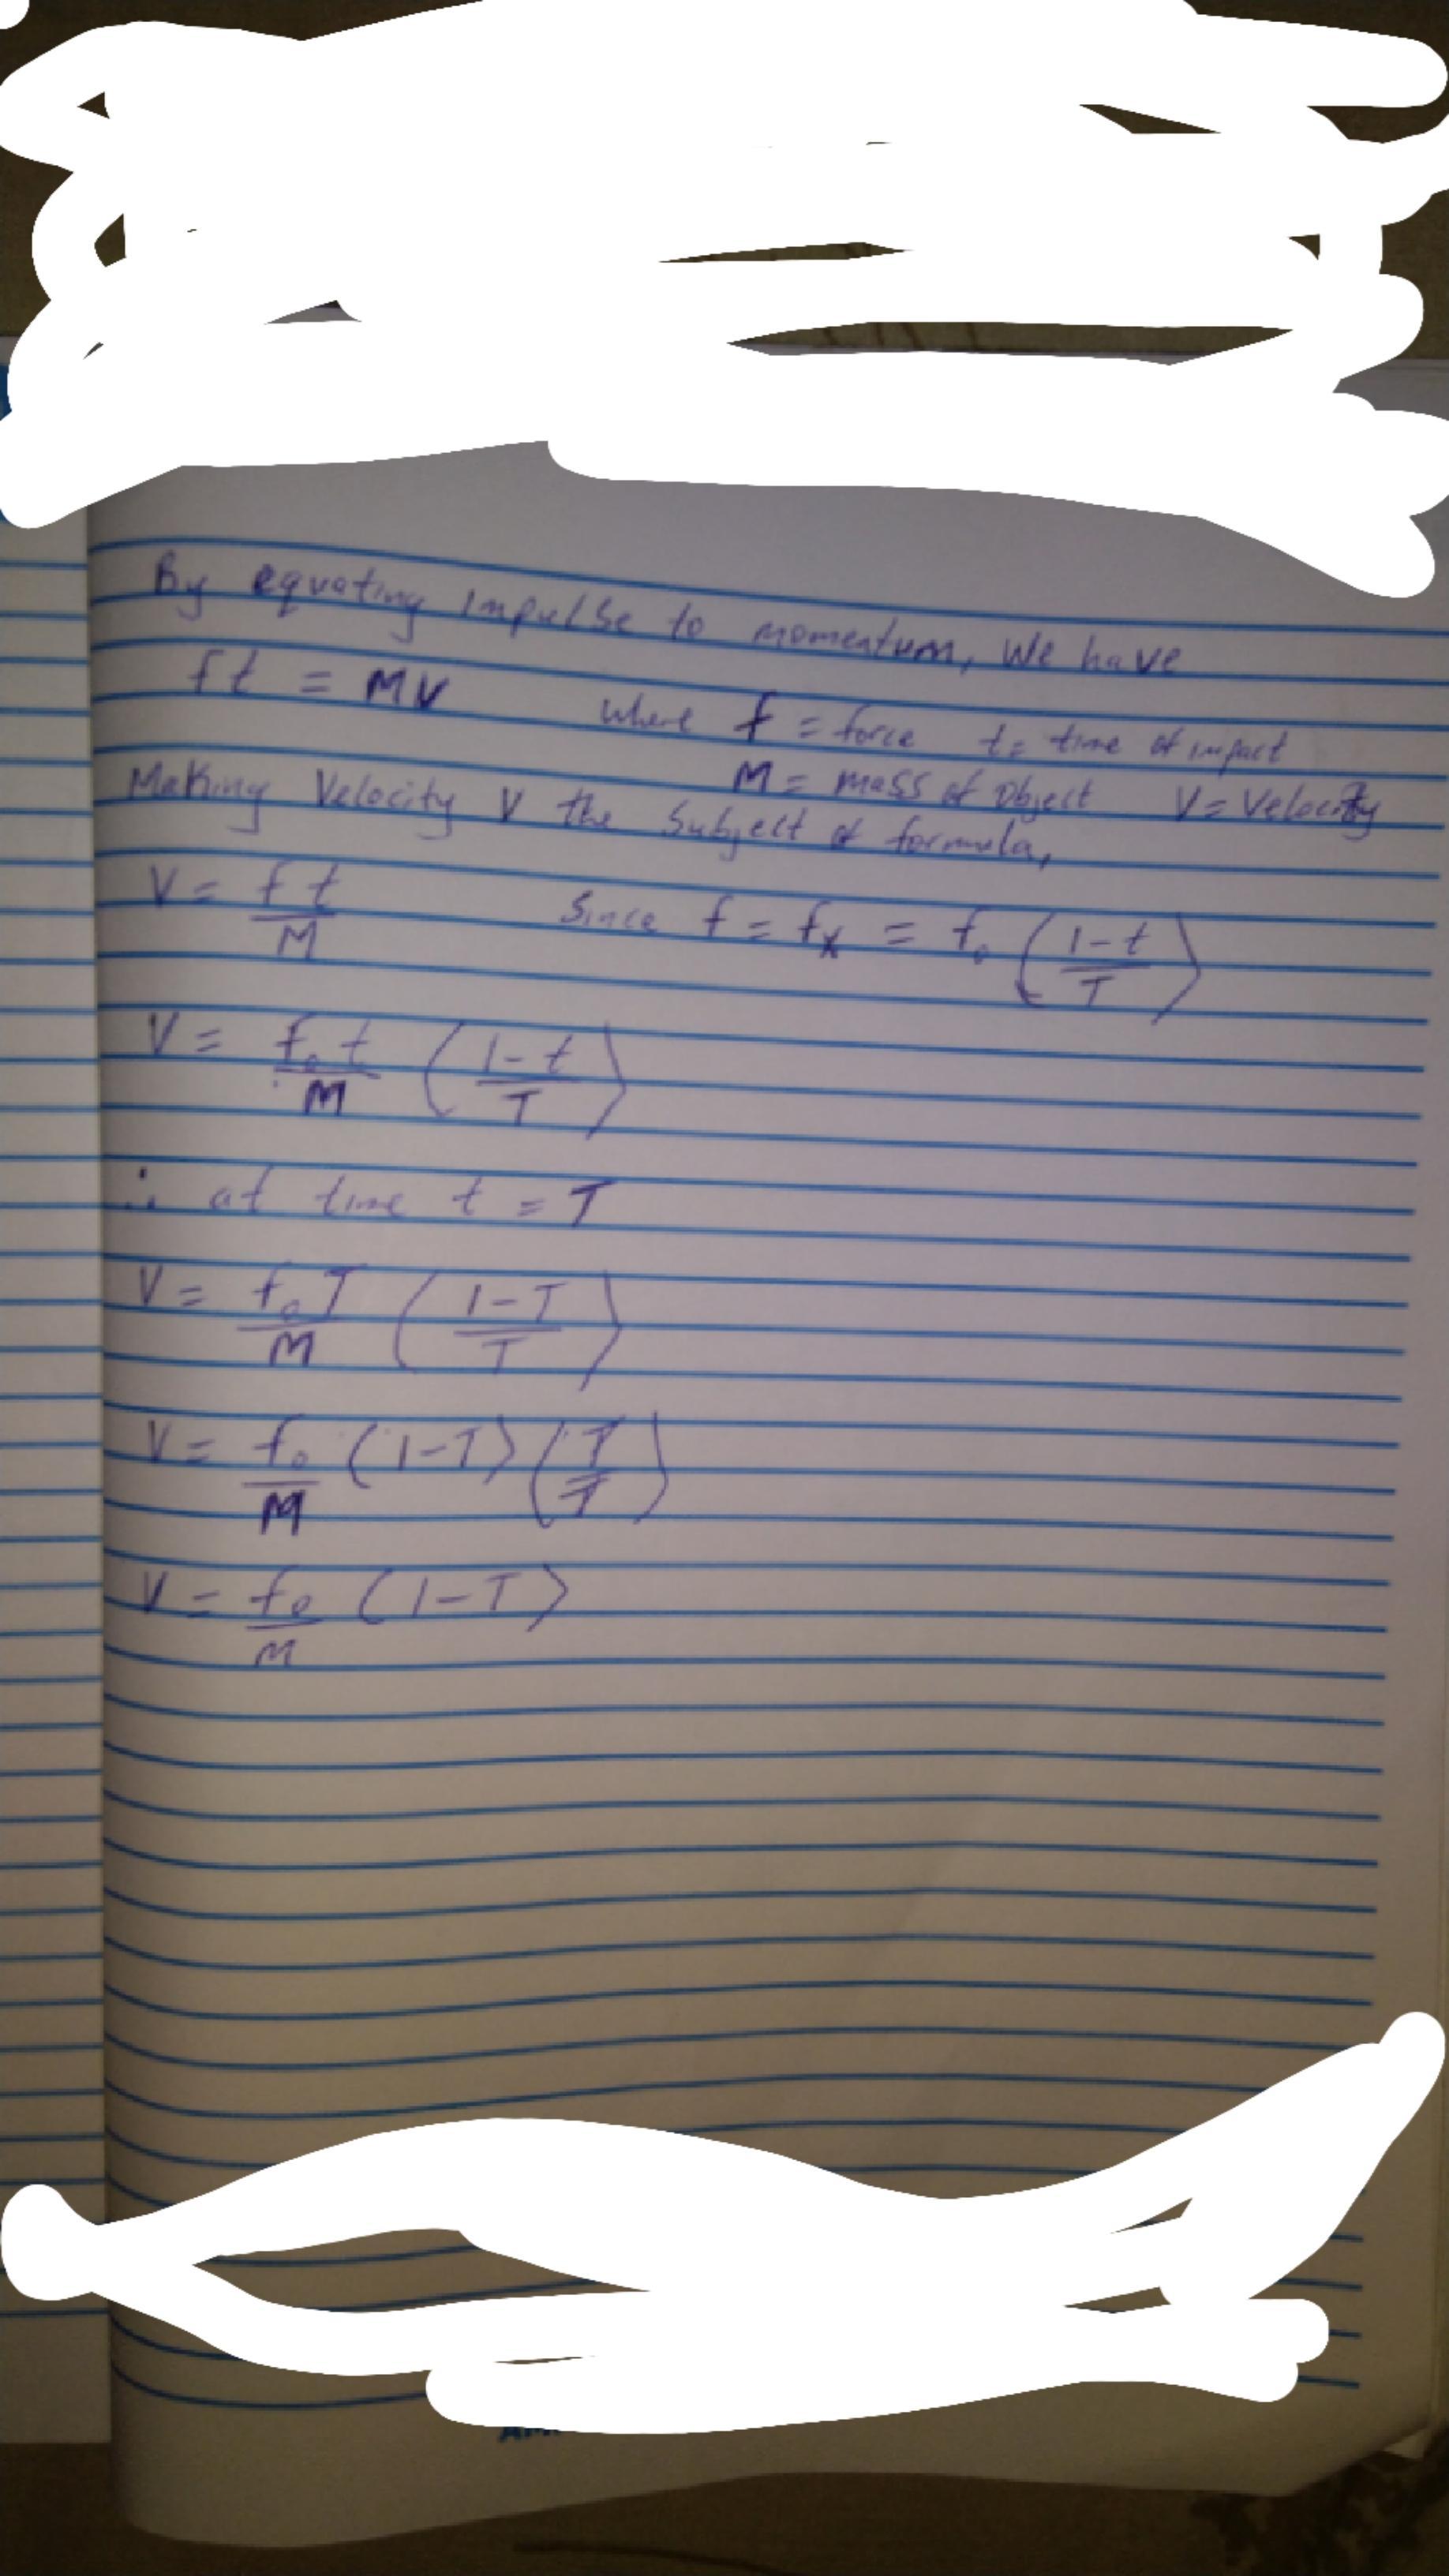 By equating impulse to momentum, We have
ft = MV where f = force t= time of impact
M = mass of object V = Velocity
Making Velocity V the subject of formula,
V = ft/M Since f = fx = f₀ ((1-t)/T)
V = f₀t/M ((1-t)/T)
∴ at time t = T
V = f₀T/M ((1-T)/T)
V = f₀/M (1-T) (T/T)
V = f₀/M (1-T)